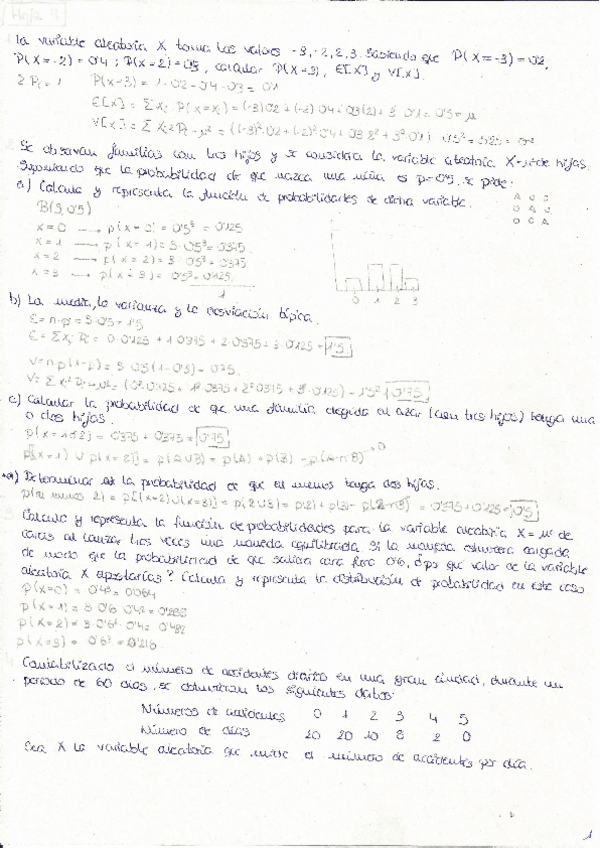 Hoja 4
La variable aleatoria X toma los valores -3, -2, 2, 3. Sabiendo que P(X=-3) = 0'2,
P(X=-2) = 0'4 ; P(X=2) = 0'3, calcular P(X=3), E[X] y V[X].
P(X=3) = 1-0'2-0'4-0'3 = 0'1
Se observan familias con tres hijos y se considera la variable aleatoria X = nº de hijas.
Suponiendo que la probabilidad de que nazca una niña es p=0'5, se pide:
a) Calcula y representa la función de probabilidades de dicha variable.
B(3, 0'5)
x=0 → p(x=0) = 0'5³ = 0'125
x=1 → p(x=1) = 3·0'5³ = 0'375
x=2 → p(x=2) = 3·0'5³ = 0'375
x=3 → p(x=3) = 0'5³ = 0'125
1
0 1 2 3
b) La media, la varianza y la desviación típica.
E = n·p = 3·0'5 = 1'5
V = n·p(1-p) = 3·0'5(1-0'5) = 0'75
c) Calcular la probabilidad de que una familia elegida al azar (con tres hijos) tenga una
o dos hijas.
p(x=1 ó 2) = 0'375 + 0'375 = 0'75
d) Determinar la probabilidad de que al menos tenga dos hijas.
Calcula y representa la función de probabilidades para la variable aleatoria X = nº de
caras al lanzar tres veces una moneda equilibrada. Si la moneda estuviera cargada
de modo que la probabilidad de que saliera cara fuera 0'6, ¿por qué valor de la variable
aleatoria X apostarías? Calcula y representa la distribución de probabilidad en este caso
p(x=0) = 0'4³ = 0'064
p(x=1) = 3·0'6·0'4² = 0'288
p(x=2) = 3·0'6²·0'4 = 0'432
p(x=3) = 0'6³ = 0'216
Contabilizado el número de accidentes diarios en una gran ciudad, durante un
periodo de 60 días, se obtuvieron los siguientes datos:
Números de accidentes 0 1 2 3 4 5
Número de días 20 20 10 8 2 0
Sea X la variable aleatoria que mide el número de accidentes por día.
1